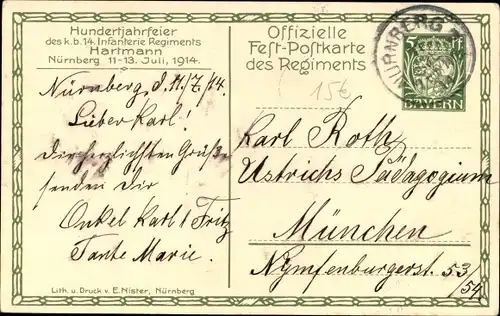 Hundertjahrfeier
des k.b. 14. Infanterie Regiments
Hartmann
Nürnberg 11-13. Juli, 1914.
Nürnberg, d. 11./7./14.
Lieber Karl!
Die herzlichsten Grüße
senden Dir
Onkel Karl, Fritz
Tante Marie.
Lith. u. Druck v. E. Nister, Nürnberg
Offizielle
Fest-Postkarte
des Regiments
15€
NÜRNBERG
5 Pf
BAYERN
Karl Roth
Ustrichs Pädagogium
München
Nymfenburgerst. 53/
54